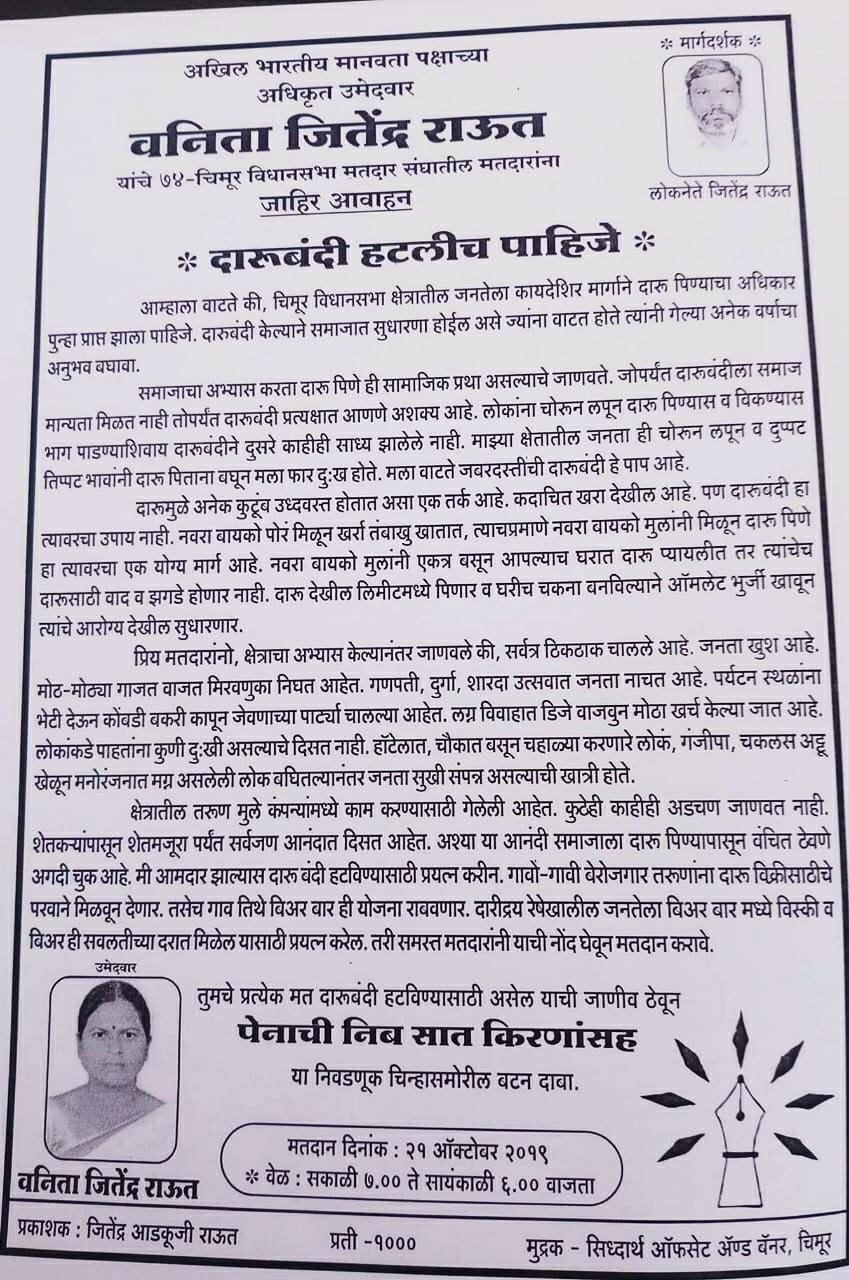 अखिल भारतीय मानवता पक्षाच्या
अधिकृत उमेदवार
वनिता जितेंद्र राऊत
यांचे ७४-चिमूर विधानसभा मतदार संघातील मतदारांना
जाहिर आवाहन
* मार्गदर्शक *
लोकनेते जितेंद्र राऊत
* दारूबंदी हटलीच पाहिजे *
आम्हाला वाटते की, चिमूर विधानसभा क्षेत्रातील जनतेला कायदेशिर मार्गाने दारू पिण्याचा अधिकार
पुन्हा प्राप्त झाला पाहिजे. दारूबंदी केल्याने समाजात सुधारणा होईल असे ज्यांना वाटत होते त्यांनी गेल्या अनेक वर्षाचा
अनुभव बघावा.
समाजाचा अभ्यास करता दारू पिणे ही सामाजिक प्रथा असल्याचे जाणवते. जोपर्यंत दारूबंदीला समाज
मान्यता मिळत नाही तोपर्यंत दारूबंदी प्रत्यक्षात आणणे अशक्य आहे. लोकांना चोरून लपून दारू पिण्यास व विकण्यास
भाग पाडण्याशिवाय दारूबंदीने दुसरे काहीही साध्य झालेले नाही. माझ्या क्षेतातील जनता ही चोरून लपून व दुप्पट
तिप्पट भावांनी दारू पिताना बघून मला फार दुःख होते. मला वाटते जबरदस्तींची दारूबंदी हे पाप आहे.
दारूमुळे अनेक कुटूंब उध्दवस्त होतात असा एक तर्क आहे. कदाचित खरा देखील आहे. पण दारूबंदी हा
त्यावरचा उपाय नाही. नवरा बायको पोरं मिळून खर्रा तंबाखु खातात, त्याचप्रमाणे नवरा बायको मुलांनी मिळून दारू पिणे
हा त्यावरचा एक योग्य मार्ग आहे. नवरा बायको मुलांनी एकत्र बसून आपल्याच घरात दारू प्यायलीत तर त्यांचेच
दारूसाठी वाद व झगडे होणार नाही. दारू देखील लिमीटमध्ये पिणार व घरीच चकना बनविल्याने ऑमलेट भुर्जी खावून
त्यांचे आरोग्य देखील सुधारणार.
प्रिय मतदारांनो, क्षेत्राचा अभ्यास केल्यानंतर जाणवले की, सर्वत्र ठिकठाक चालले आहे. जनता खुश आहे.
मोठ-मोठ्या गाजत वाजत मिरवणुका निघत आहेत. गणपती, दुर्गा, शारदा उत्सवात जनता नाचत आहे. पर्यटन स्थळांना
भेटी देऊन कोंबडी बकरी कापून जेवणाच्या पार्ट्या चालल्या आहेत. लग्न विवाहात डिजे वाजवुन मोठा खर्च केल्या जात आहे.
लोकांकडे पाहतांना कुणी दुःखी असल्याचे दिसत नाही. हॉटेलात, चौकात बसून चहाळ्या करणारे लोकं, गंजीपा, चकलस अट्टू
खेळून मनोरंजनात मग्न असलेली लोक बघितल्यानंतर जनता सुखी संपन्न असल्याची खात्री होते.
क्षेत्रातील तरूण मुले कंपन्यांमध्ये काम करण्यासाठी गेलेली आहेत. कुठेही काहीही अडचण जाणवत नाही.
शेतकऱ्यांपासून शेतमजूरा पर्यंत सर्वजण आनंदात दिसत आहेत. अश्या या आनंदी समाजाला दारू पिण्यापासून वंचित ठेवणे
अगदी चुक आहे. मी आमदार झाल्यास दारू बंदी हटविण्यासाठी प्रयत्न करीन. गावों-गावी बेरोजगार तरूणांना दारू विक्रीसाठीचे
परवाने मिळवून देणार. तसेच गाव तिथे बिअर बार ही योजना राबवणार. दारीद्रय रेषेखालील जनतेला बिअर बार मध्ये विस्की व
बिअर ही सवलतीच्या दरात मिळेल यासाठी प्रयत्न करेल. तरी समस्त मतदारांनी याची नोंद घेवून मतदान करावे.
उमेदवार
तुमचे प्रत्येक मत दारूबंदी हटविण्यासाठी असेल याची जाणीव ठेवून
पेनाची निब सात किरणांसह
या निवडणूक चिन्हासमोरील बटन दाबा.
मतदान दिनांक : २१ ऑक्टोबर २०१९
* वेळ : सकाळी ७.०० ते सायंकाळी ६.०० वाजता
वनिता जितेंद्र राऊत
प्रकाशक : जितेंद्र आडकूजी राऊत
प्रती -१०००
मुद्रक - सिध्दार्थ ऑफसेट ॲण्ड बॅनर, चिमूर